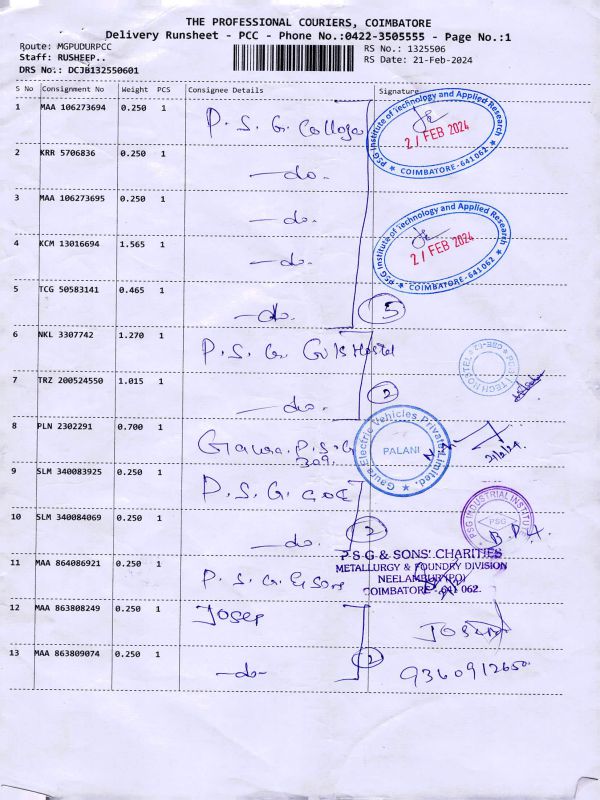 THE PROFESSIONAL COURIERS, COIMBATORE
Delivery Runsheet - PCC - Phone No.:0422-3505555 - Page No.:1
Route: MGPUDURPCC
RS No.: 1325506
Staff: RUSHEEP..
RS Date: 21-Feb-2024
DRS No.: DCJB132550601
S No Consignment No Weight PCS Consignee Details Signature
1 MAA 106273694 0.250 1 P. S. G. College
PSG Institute of Technology and Applied Research
21 FEB 2024
★ COIMBATORE - 641 062. ★
2 KRR 5706836 0.250 1 —do.
3 MAA 106273695 0.250 1 —do-
PSG Institute of Technology and Applied Research
21 FEB 2024
★ COIMBATORE - 641 062. ★
4 KCM 13016694 1.565 1 —do-
5 TCG 50583141 0.465 1 —do. 5
6 NKL 3307742 1.270 1 P. S. G. Hostel
7 TRZ 200524550 1.015 1 —do. 2
8 PLN 2302291 0.700 1 Gaura. P.S.G
309.
Gaura Electric Vehicles Private Limited. ★
PALANI
21/2/24
9 SLM 340083925 0.250 1 P. S. G.
PSG INDUSTRIAL INSTITUTE
PSG
10 SLM 340084069 0.250 1 —do. 2
P S G & SONS' CHARITIES
METALLURGY & FOUNDRY DIVISION
NEELAMBUR (PO)
COIMBATORE - 641 062.
11 MAA 864086921 0.250 1 P. S. G. & Sons
12 MAA 863808249 0.250 1 Josep
13 MAA 863809074 0.250 1 —do- 2
9360912650